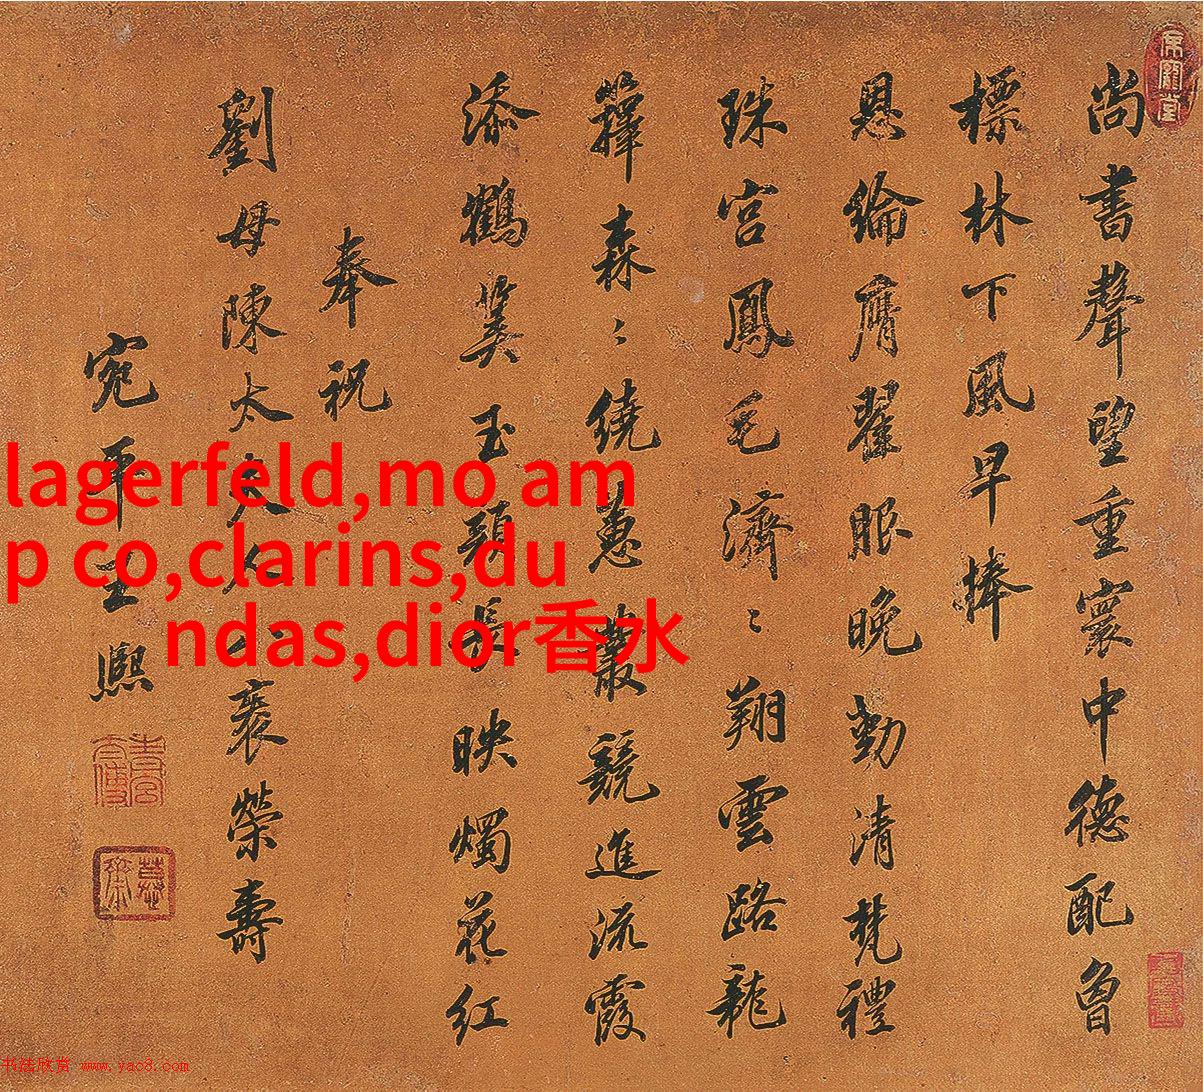 尚書聲望重寰中德配魯
標林下風早捧
恩綸膺翟服晚勤清梵禮
珠宮鳳毛濟〻翔雲路龍
籜森〻繞蕙叢競進流霞
添鶴筭玉顏長映燭花红
奉祝
劉母陳太夫人八袠榮壽
宛平王熙
lagerfeld,mo am
p co,clarins,du
ndas,dior香水
书法欣赏 www.yac8.com